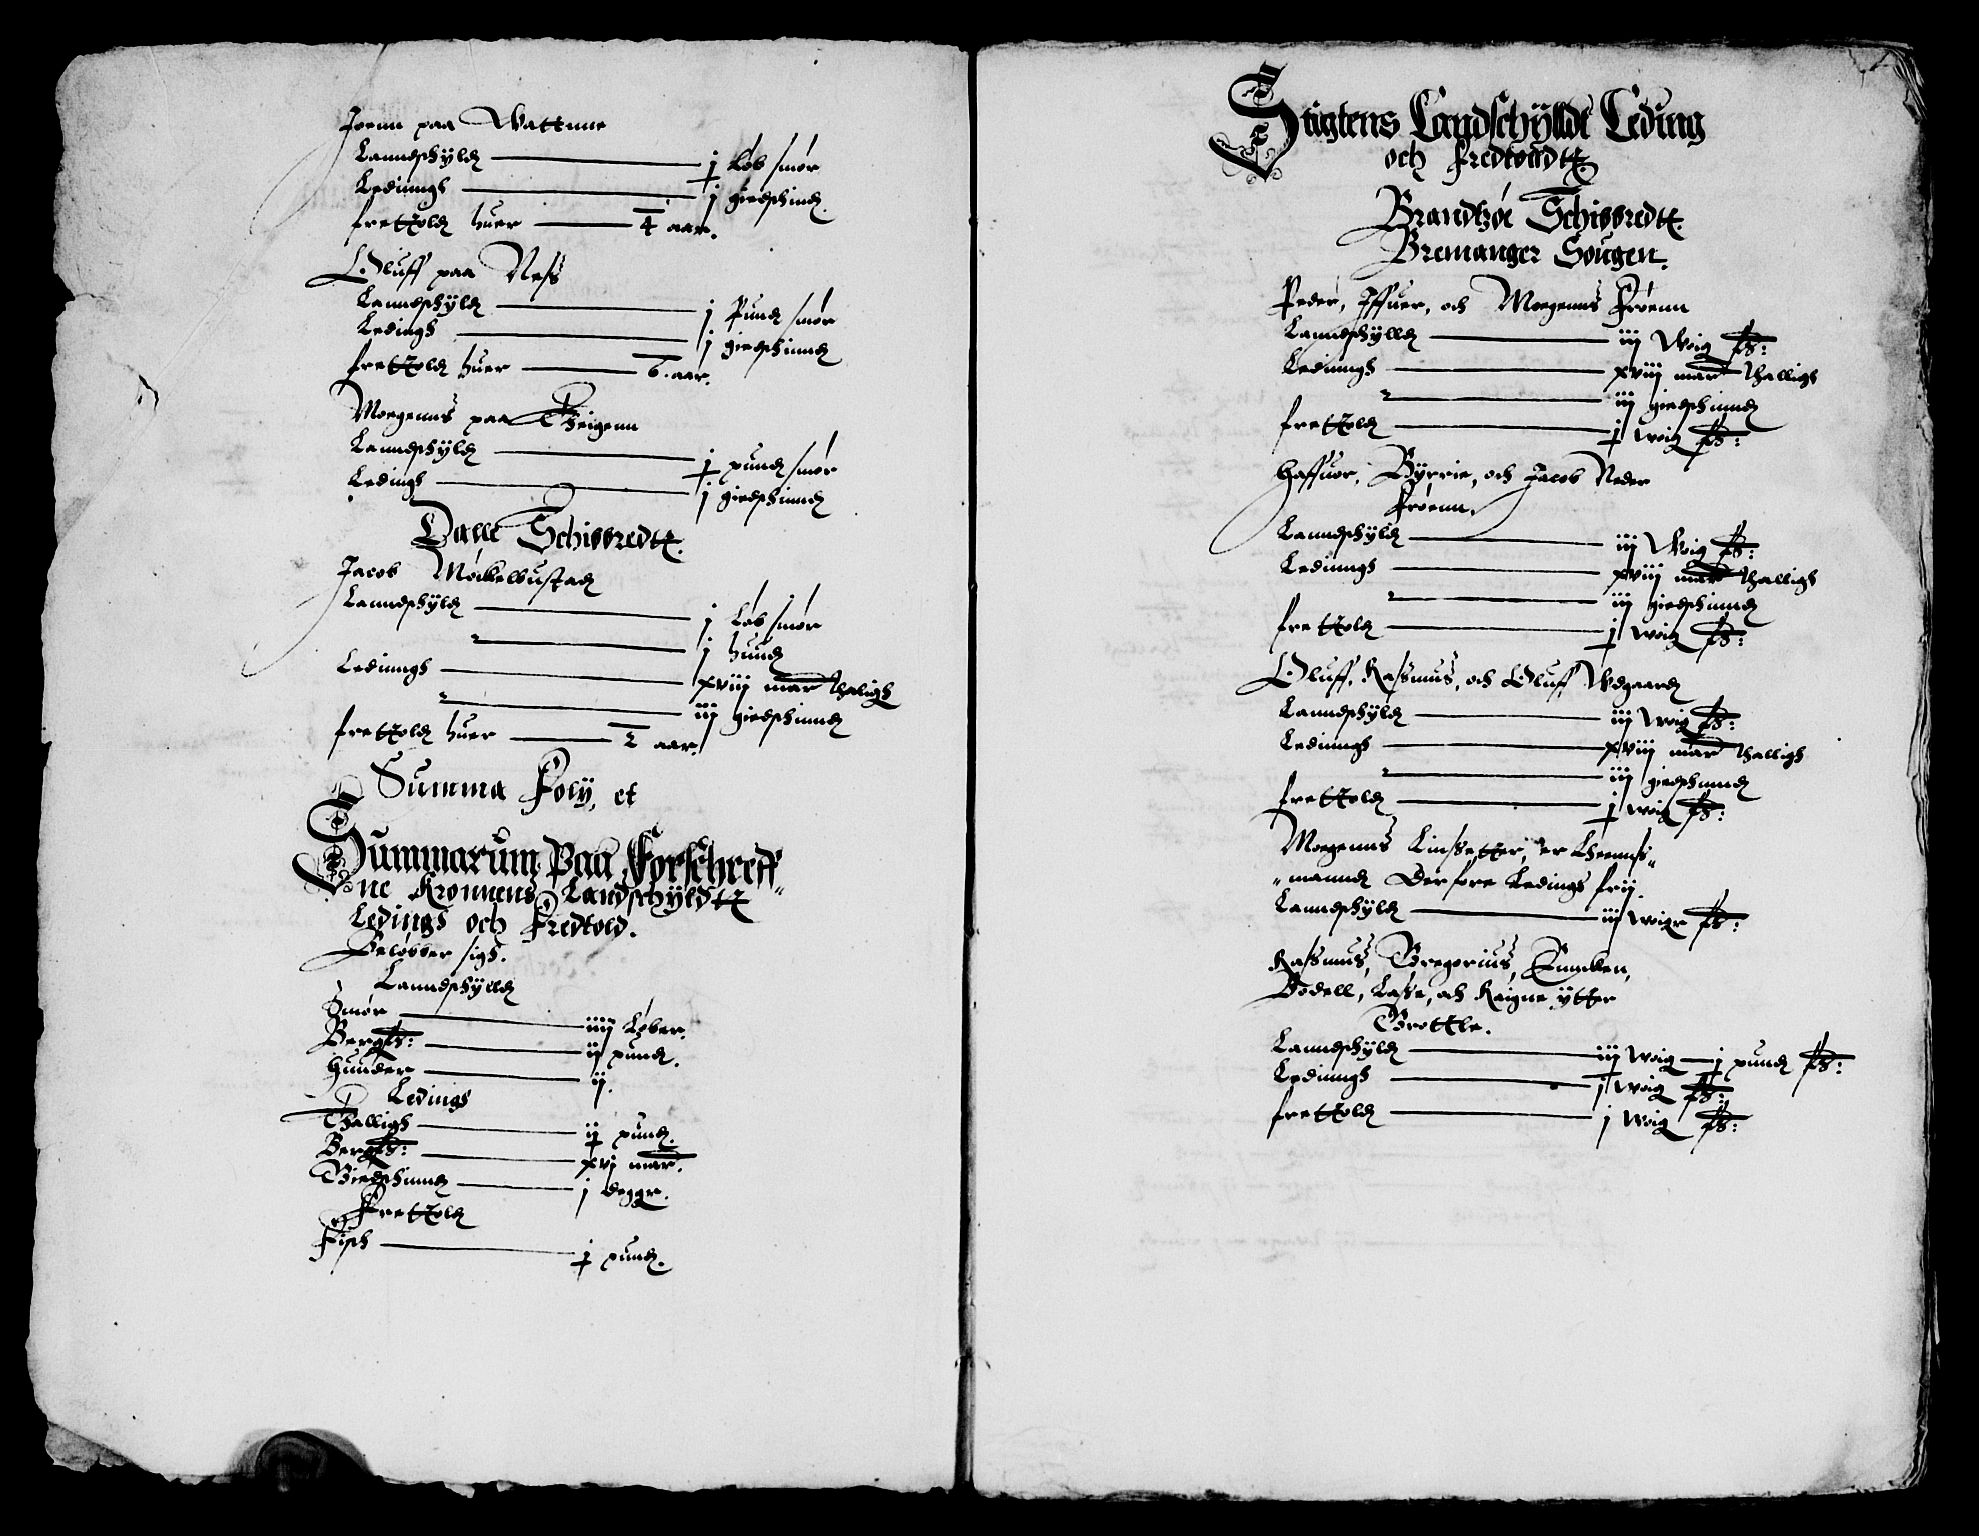 Joenn paa Wattnne
Lanndschÿld — j Løb smør
Ledinngs — j giedschind
frettold huer — 4 aar.
Oluff paa Ness
Lanndschÿld — j Pund smør
Ledings — j giedschinnd
frettold huer — 6. aar.
Moegenns paa Theigenn
Lanndschÿld — j pund smør
Ledings — j giedschinnd
Dalle Schibbredtt.
Jacob Møckelbustad
Lanndschÿld — j Løb smør
— j hund
Ledinngs — xviij mar thaligh
— iij giedschinnd
frettold huer — 2 aar.
Summa Foly, et
Summarum paa Forschreff„
ne Kronnens Landschÿldtt
Ledings och Fredtold.
Beløbber sigh.
Lanndschÿlld
Smør — iiij Løber.
Bergfs: — ij pund.
Hunder — ij.
Ledings
Thalligh — ij pund.
Bergfs: — xvj mar.
Giedschinnd — j deggr.
Frettold
Fisch — j pund.
Stigtens Landschÿlldt Leding
och Fredtolldtt.
Brandtzøe Schibbredtt.
Bremanger Sougen.
Peder, Iffuer, och Moegenns Frøenn
Lanndschÿlld — iij Woig fs:
Ledinngs — xviij mar thalligh
— iij giedschinnd
frettold — j woig fs:
Haffuor, Bÿrrie, och Jacob Neder
Frøenn.
Lanndschÿld — iij Woig fs:
Ledinngs — xviij mar thalligh
— iij giedschinnd
frettold — j woig fs:
Oluff, Rassmus, och Oluff Wdgaard
Lanndschÿld — iij Woig fs:
Ledinngs — xviij mar thalligh
— iij giedschinnd
frettold — j woig fs:
Moegenns Linssetter, er
„mannd Derfore Ledings frij.
Lanndschÿld — iij woigr fs:
Rassmus, Gregorius,
Bodell, Lasse, och Raigne ÿtter
Grottle.
Lanndschÿld — iij woig — j pund fs:
Ledinngs — j woig fs:
frettold — j woig fs: